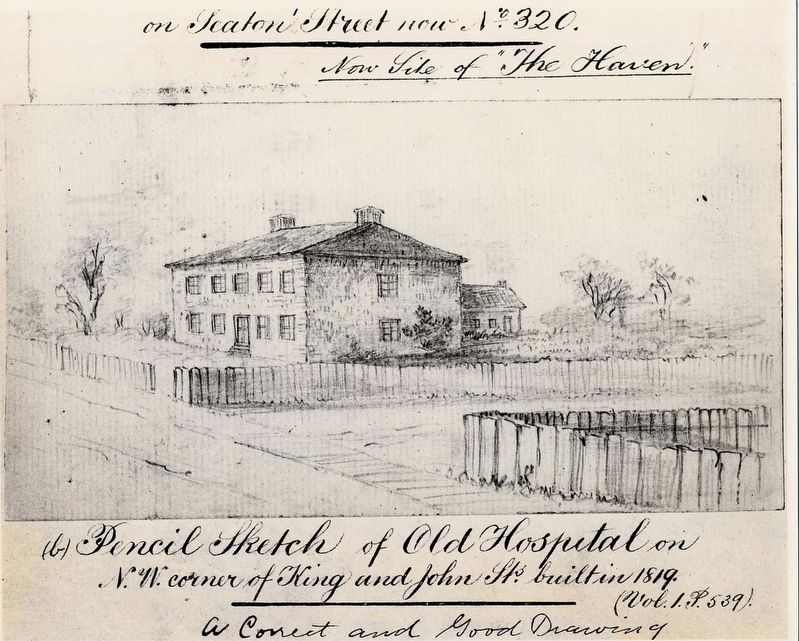 on Seaton Street now No. 320.
Now Site of "The Haven."
(b) Pencil Sketch of Old Hospital on
N.W. corner of King and John Sts. built in 1819.
(Vol. 1. P. 539).
A Correct and Good Drawing